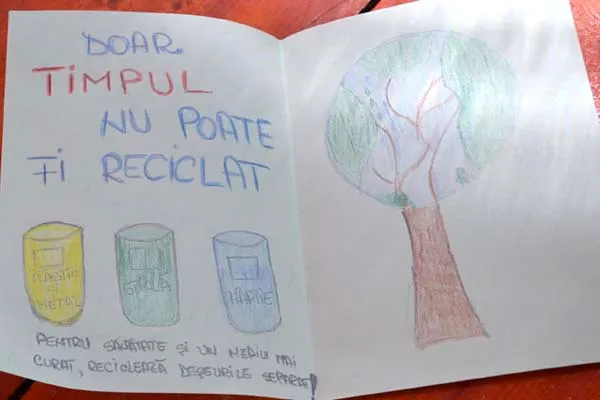 DOAR
TIMPUL
NU POATE
FI RECICLAT
PLASTIC
ȘI
METAL
STICLĂ
HÂRTIE
PENTRU SĂNĂTATE ȘI UN MEDIU MAI
CURAT, RECICLEAZĂ DEȘEURILE SEPARAT!